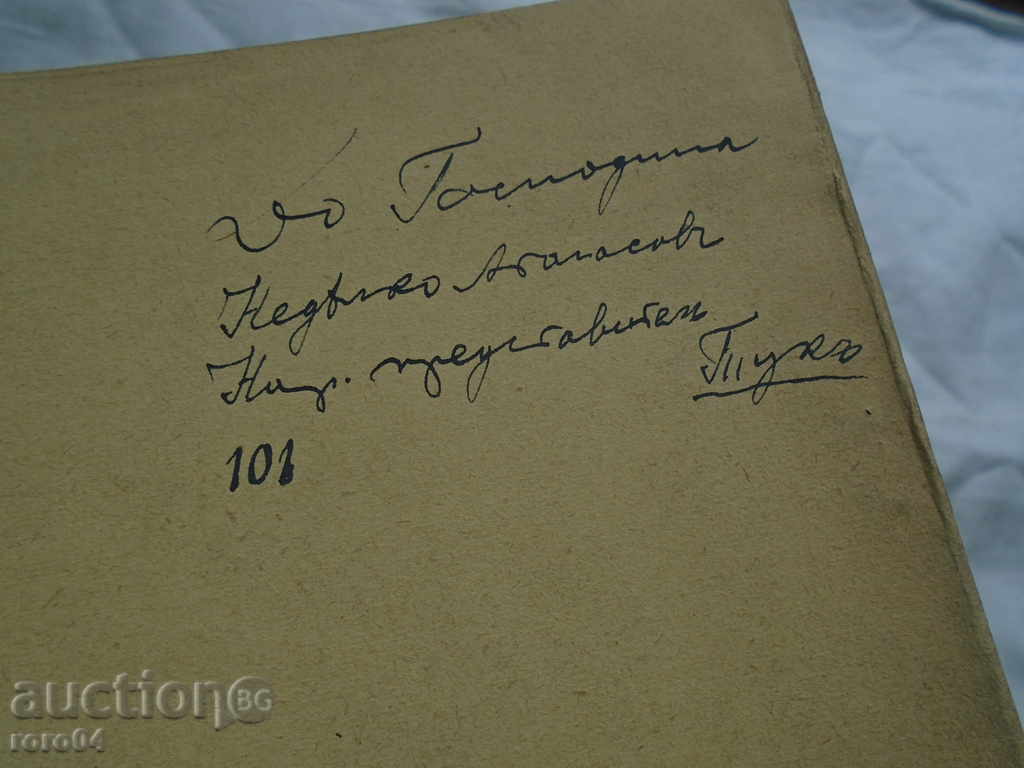 До Господина
Недѣлко Атанасовъ
Нар. представител
Тукъ
101
auction BG
roro04